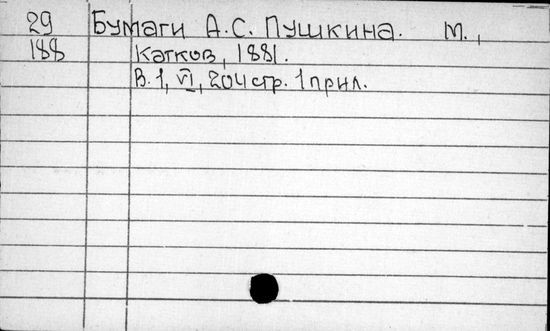 29 Бумаги А.С. Пушкина. М.,
188 Катков, 1881.
В. 1, VI, 204 стр. 1 прил.